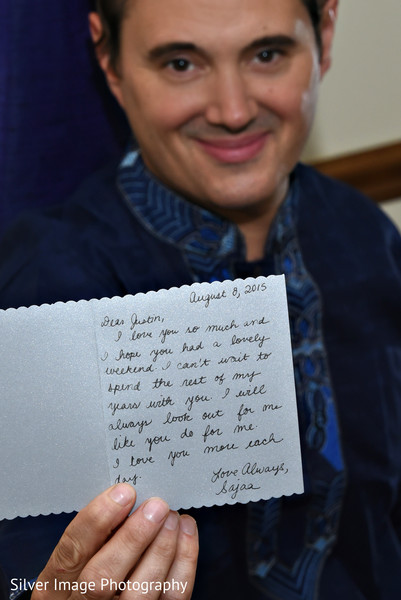 August 8, 2015
Dear Justin,
I love you so much and
I hope you had a lovely
weekend. I can't wait to
spend the rest of my
years with you. I will
always look out for me
like you do for me.
I love you more each
day.
Love Always,
Sajaa
Silver Image Photography